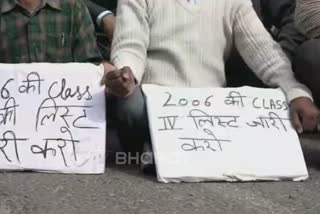 6 की Class
की लिस्ट
री करो
2006 की CLASS
IV लिस्ट जारी
करो
BHARAT